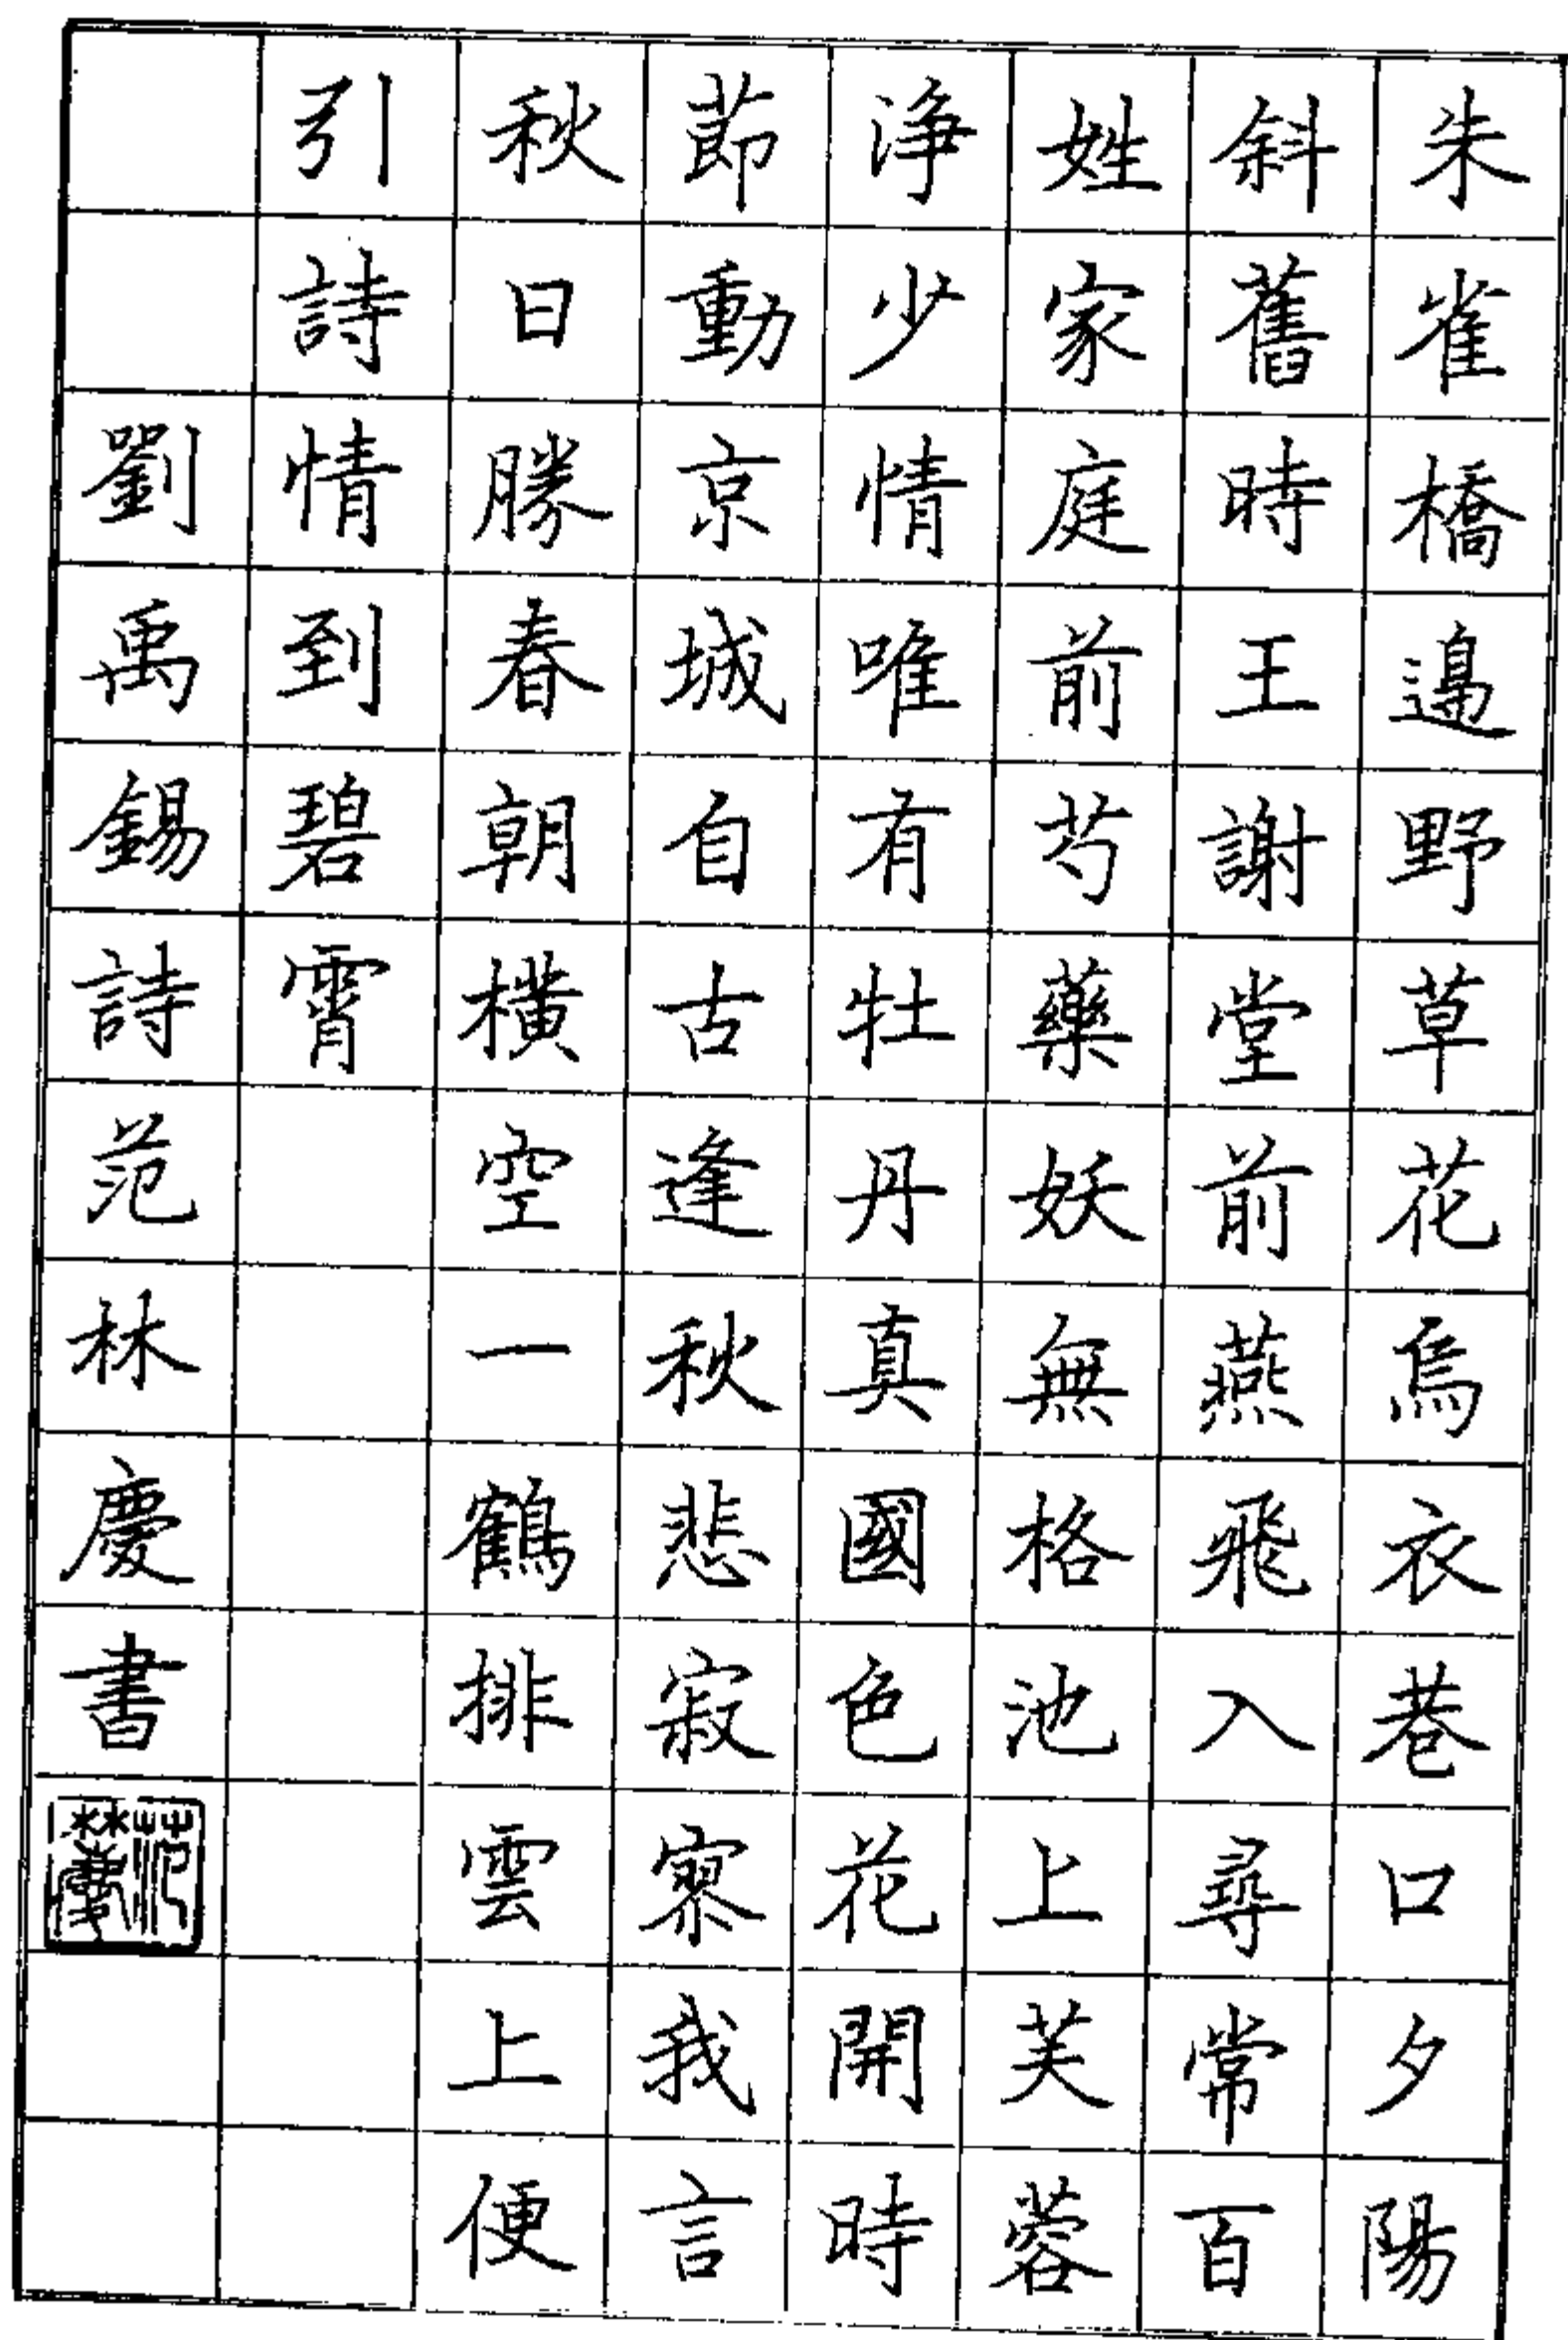 朱雀橋邊野草花烏衣巷口夕陽
斜舊時王謝堂前燕飛入尋常百
姓家庭前芍藥妖無格池上芙蓉
淨少情唯有牡丹真國色花開時
節動京城自古逢秋悲寂寥我言
秋日勝春朝橫空一鶴排雲上便
引詩情到碧霄
劉禹錫詩范林慶書
范林慶